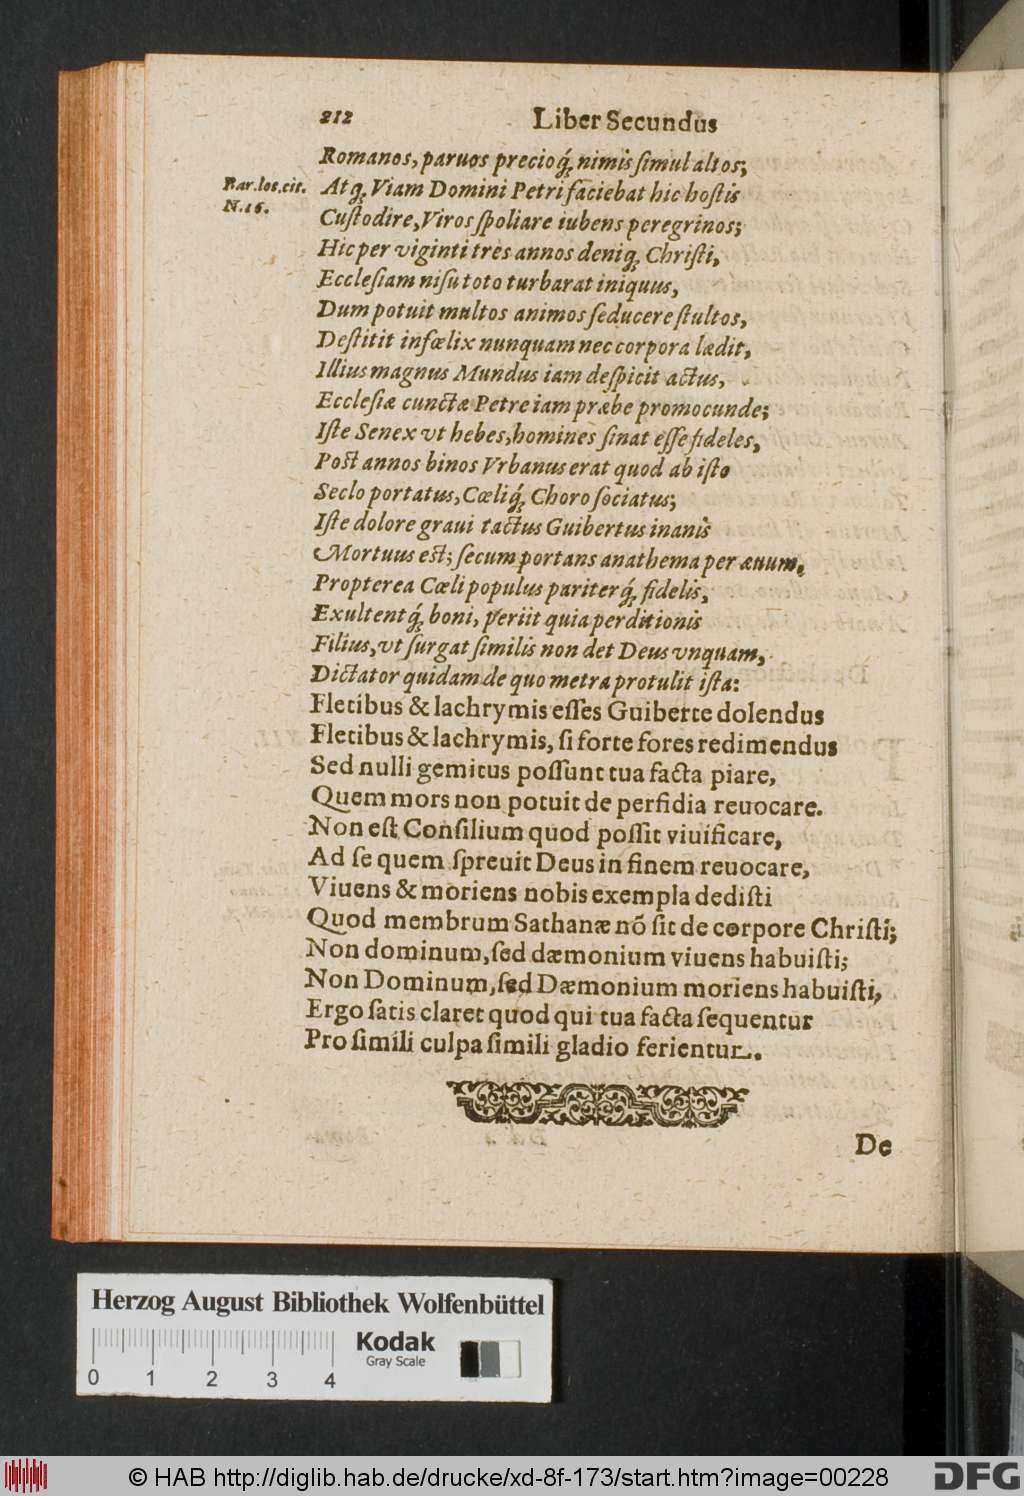 212 Liber Secundus
Romanos, paruos precioq́; nimis ſimul altos;
Bar. loc. cit. Atq; Viam Domini Petri faciebat hic hoſtis
N. 16.
Cuſtodire, Viros ſpoliare iubens peregrinos;
Hic per viginti tres annos deniq; Chriſti,
Eccleſiam niſu toto turbarat iniquus,
Dum potuit multos animos ſeducere ſtultos,
Deſtitit infœlix nunquam nec corpora lædit,
Illius magnus Mundus iam deſpicit actus,
Eccleſiæ cunctæ Petre iam præbe promocunde;
Iſte Senex vt hebes, homines ſinat eſſe fideles,
Poſt annos binos Vrbanus erat quod ab iſto
Seclo portatus, Cœliq́; Choro ſociatus;
Iſte dolore graui tactus Guibertus inanis
Mortuus eſt; ſecum portans anathema per æuum,
Propterea Cœli populus pariterq́; fidelis,
Exultentq́; boni, periit quia perditionis
Filius, vt ſurgat ſimilis non det Deus vnquam,
Dictator quidam de quo metra protulit iſta:
Fletibus & lachrymis eſſes Guiberte dolendus
Fletibus & lachrymis, ſi forte fores redimendus
Sed nulli gemitus poſſunt tua facta piare,
Quem mors non potuit de perfidia reuocare.
Non eſt Conſilium quod poſſit viuificare,
Ad ſe quem ſpreuit Deus in finem reuocare,
Viuens & moriens nobis exempla dediſti
Quod membrum Sathanæ nõ ſit de corpore Chriſti;
Non dominum, ſed dæmonium viuens habuiſti;
Non Dominum, ſed Dæmonium moriens habuiſti,
Ergo ſatis claret quod qui tua facta ſequentur
Pro ſimili culpa ſimili gladio ferientur.
De
Herzog August Bibliothek Wolfenbüttel
Kodak
Gray Scale
0 1 2 3 4
© HAB http://diglib.hab.de/drucke/xd-8f-173/start.htm?image=00228
DFG